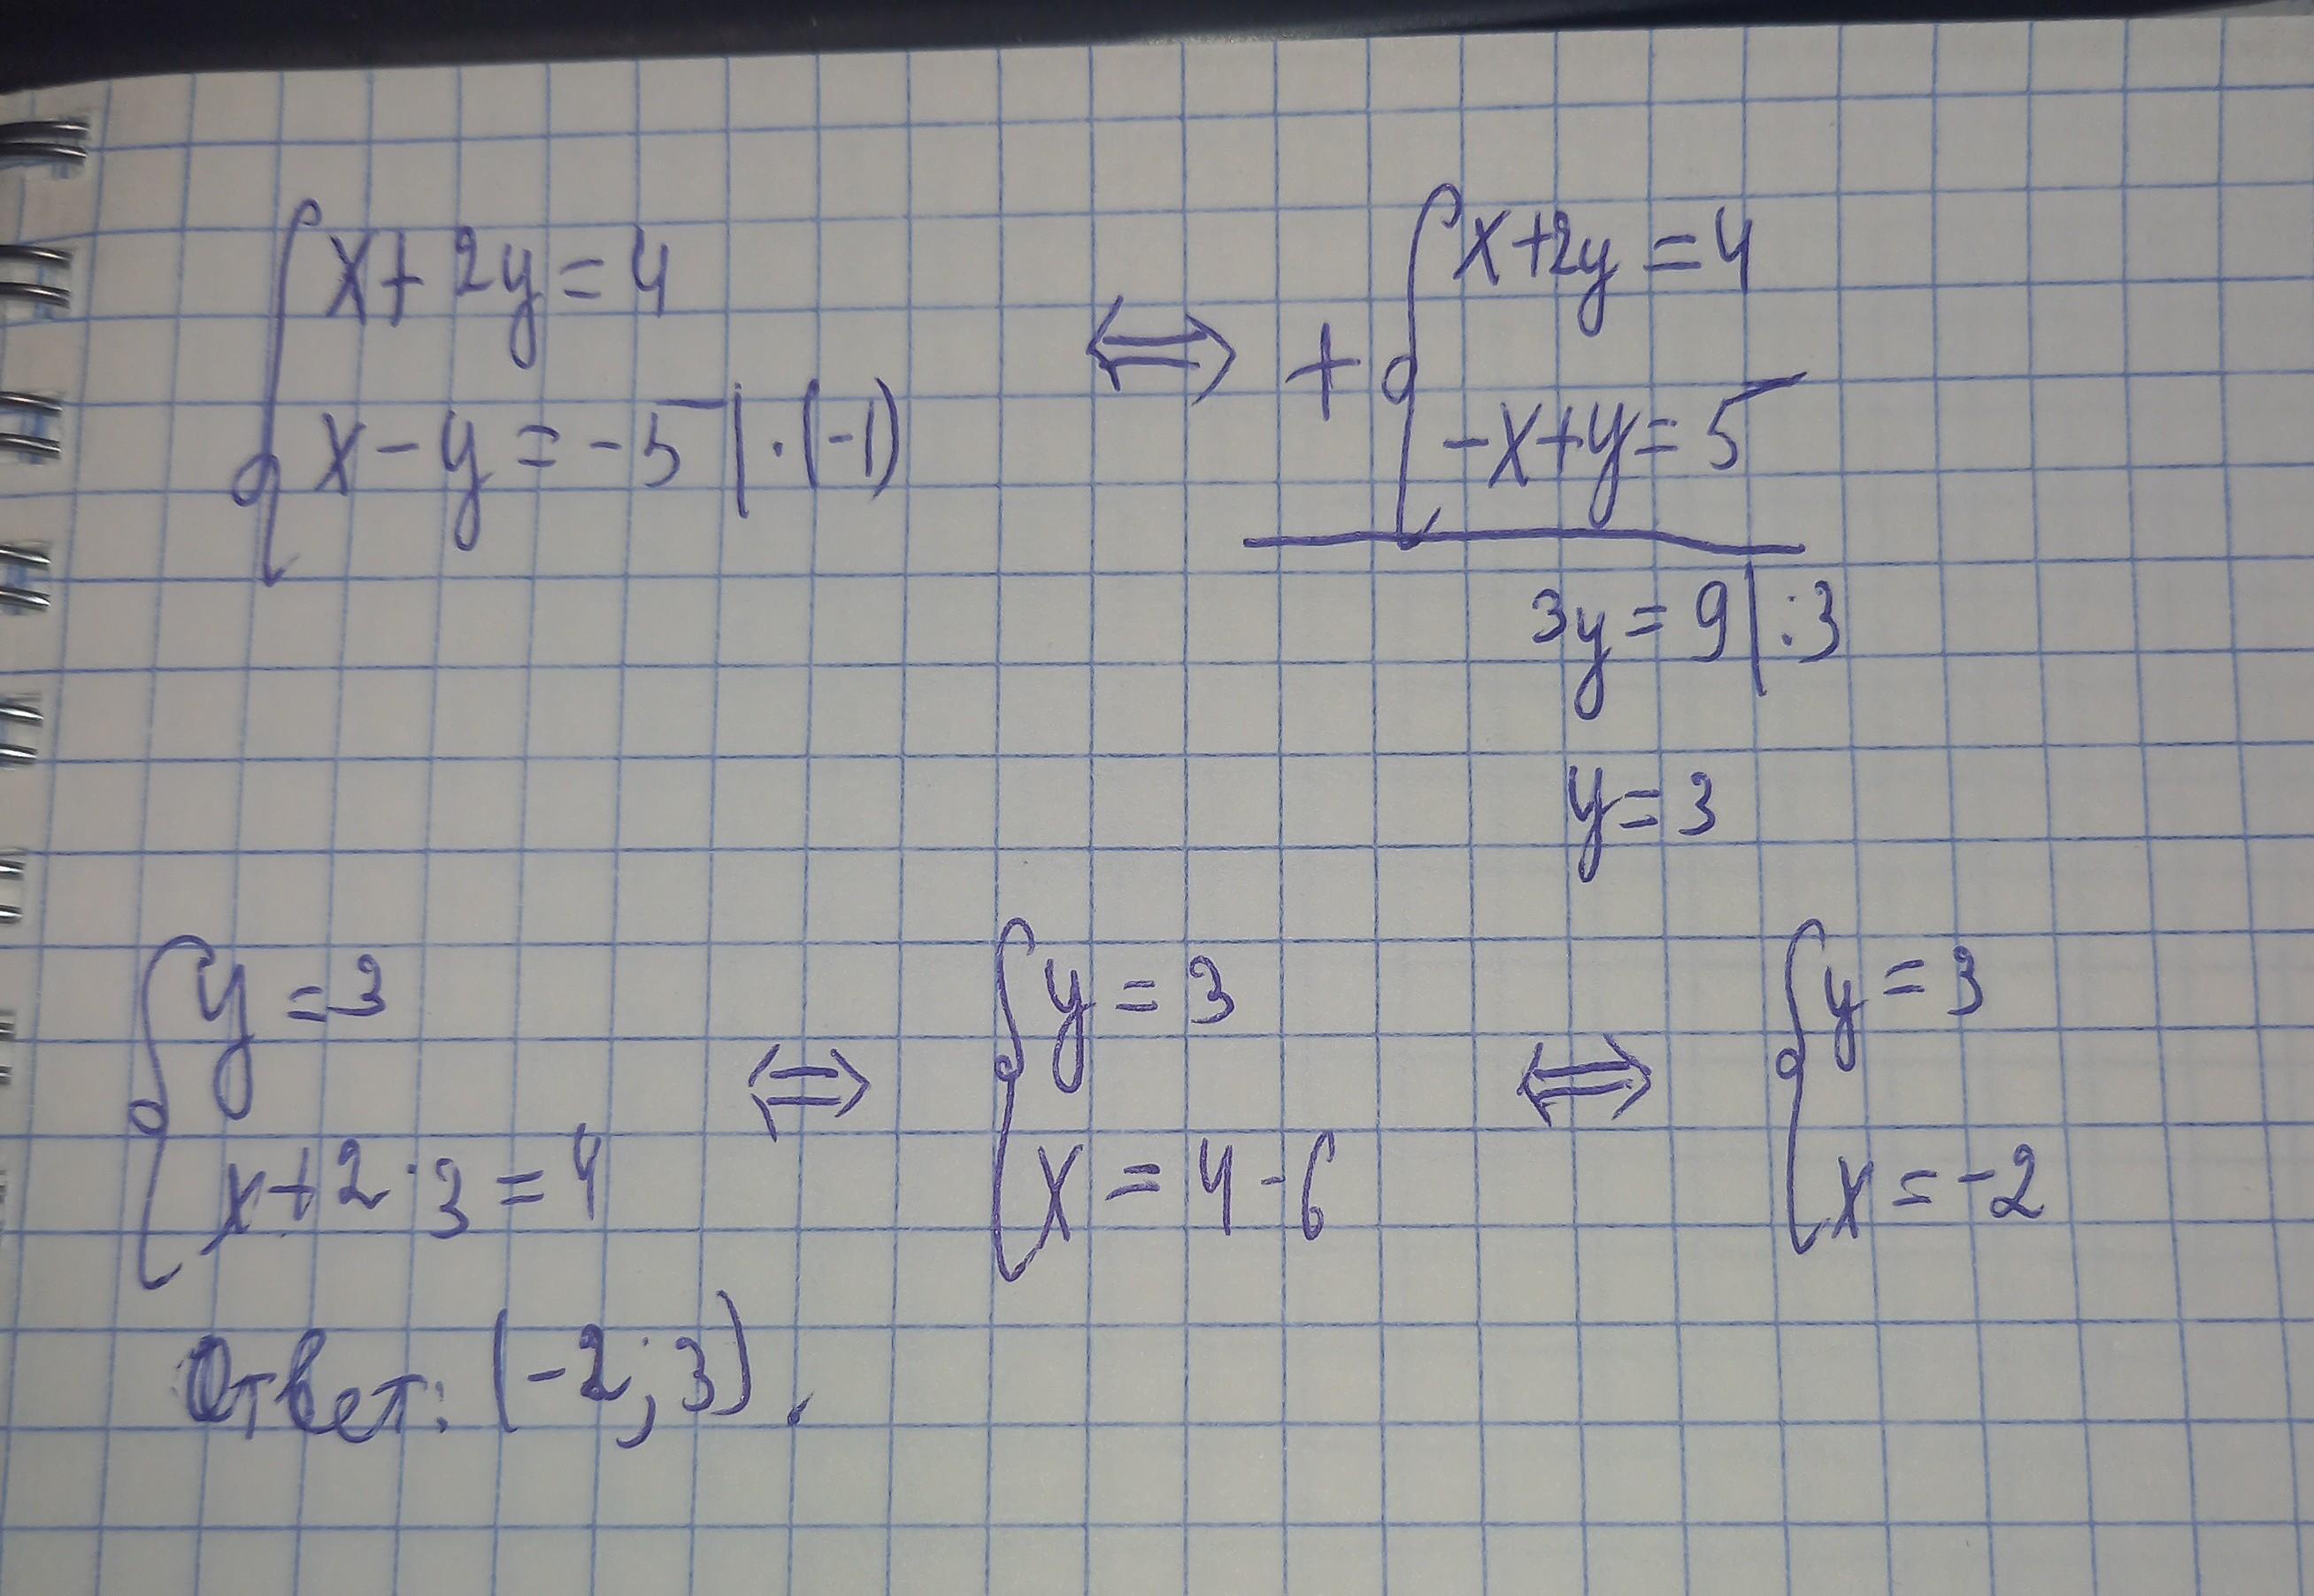 x+2y=4
x-y=-5|·(-1)
⇔
+
x+2y=4
-x+y=5
3y=9|:3
y=3
y=3
x+2·3=4
⇔
y=3
x=4-6
⇔
y=3
x=-2
Ответ: (-2;3).